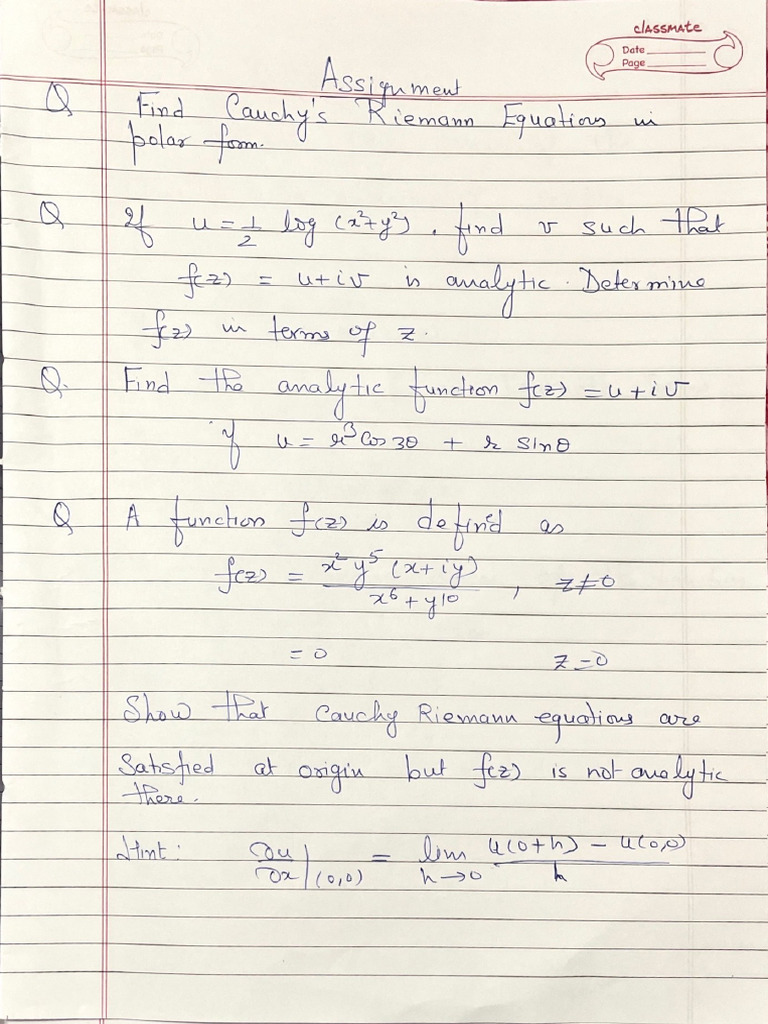 classmate
Date
Page
Assignment
Q Find Cauchy's Riemann Equations in
polar form.
Q If u = 1/2 log (x²+y²). find v such that
f(z) = u+iv is analytic. Determine
f(z) in terms of z.
Q. Find the analytic function f(z) = u+iv
if u = r³ Cos 3θ + r sinθ
Q A function f(z) is defined as
f(z) = x² y⁵ (x+iy) / x⁶ + y¹⁰ , z≠0
= 0 z=0
Show that Cauchy Riemann equations are
satisfied at origin but f(z) is not analytic
there.
Hint: ∂u/∂x |(0,0) = lim h→0 u(0+h) - u(0,0) / h